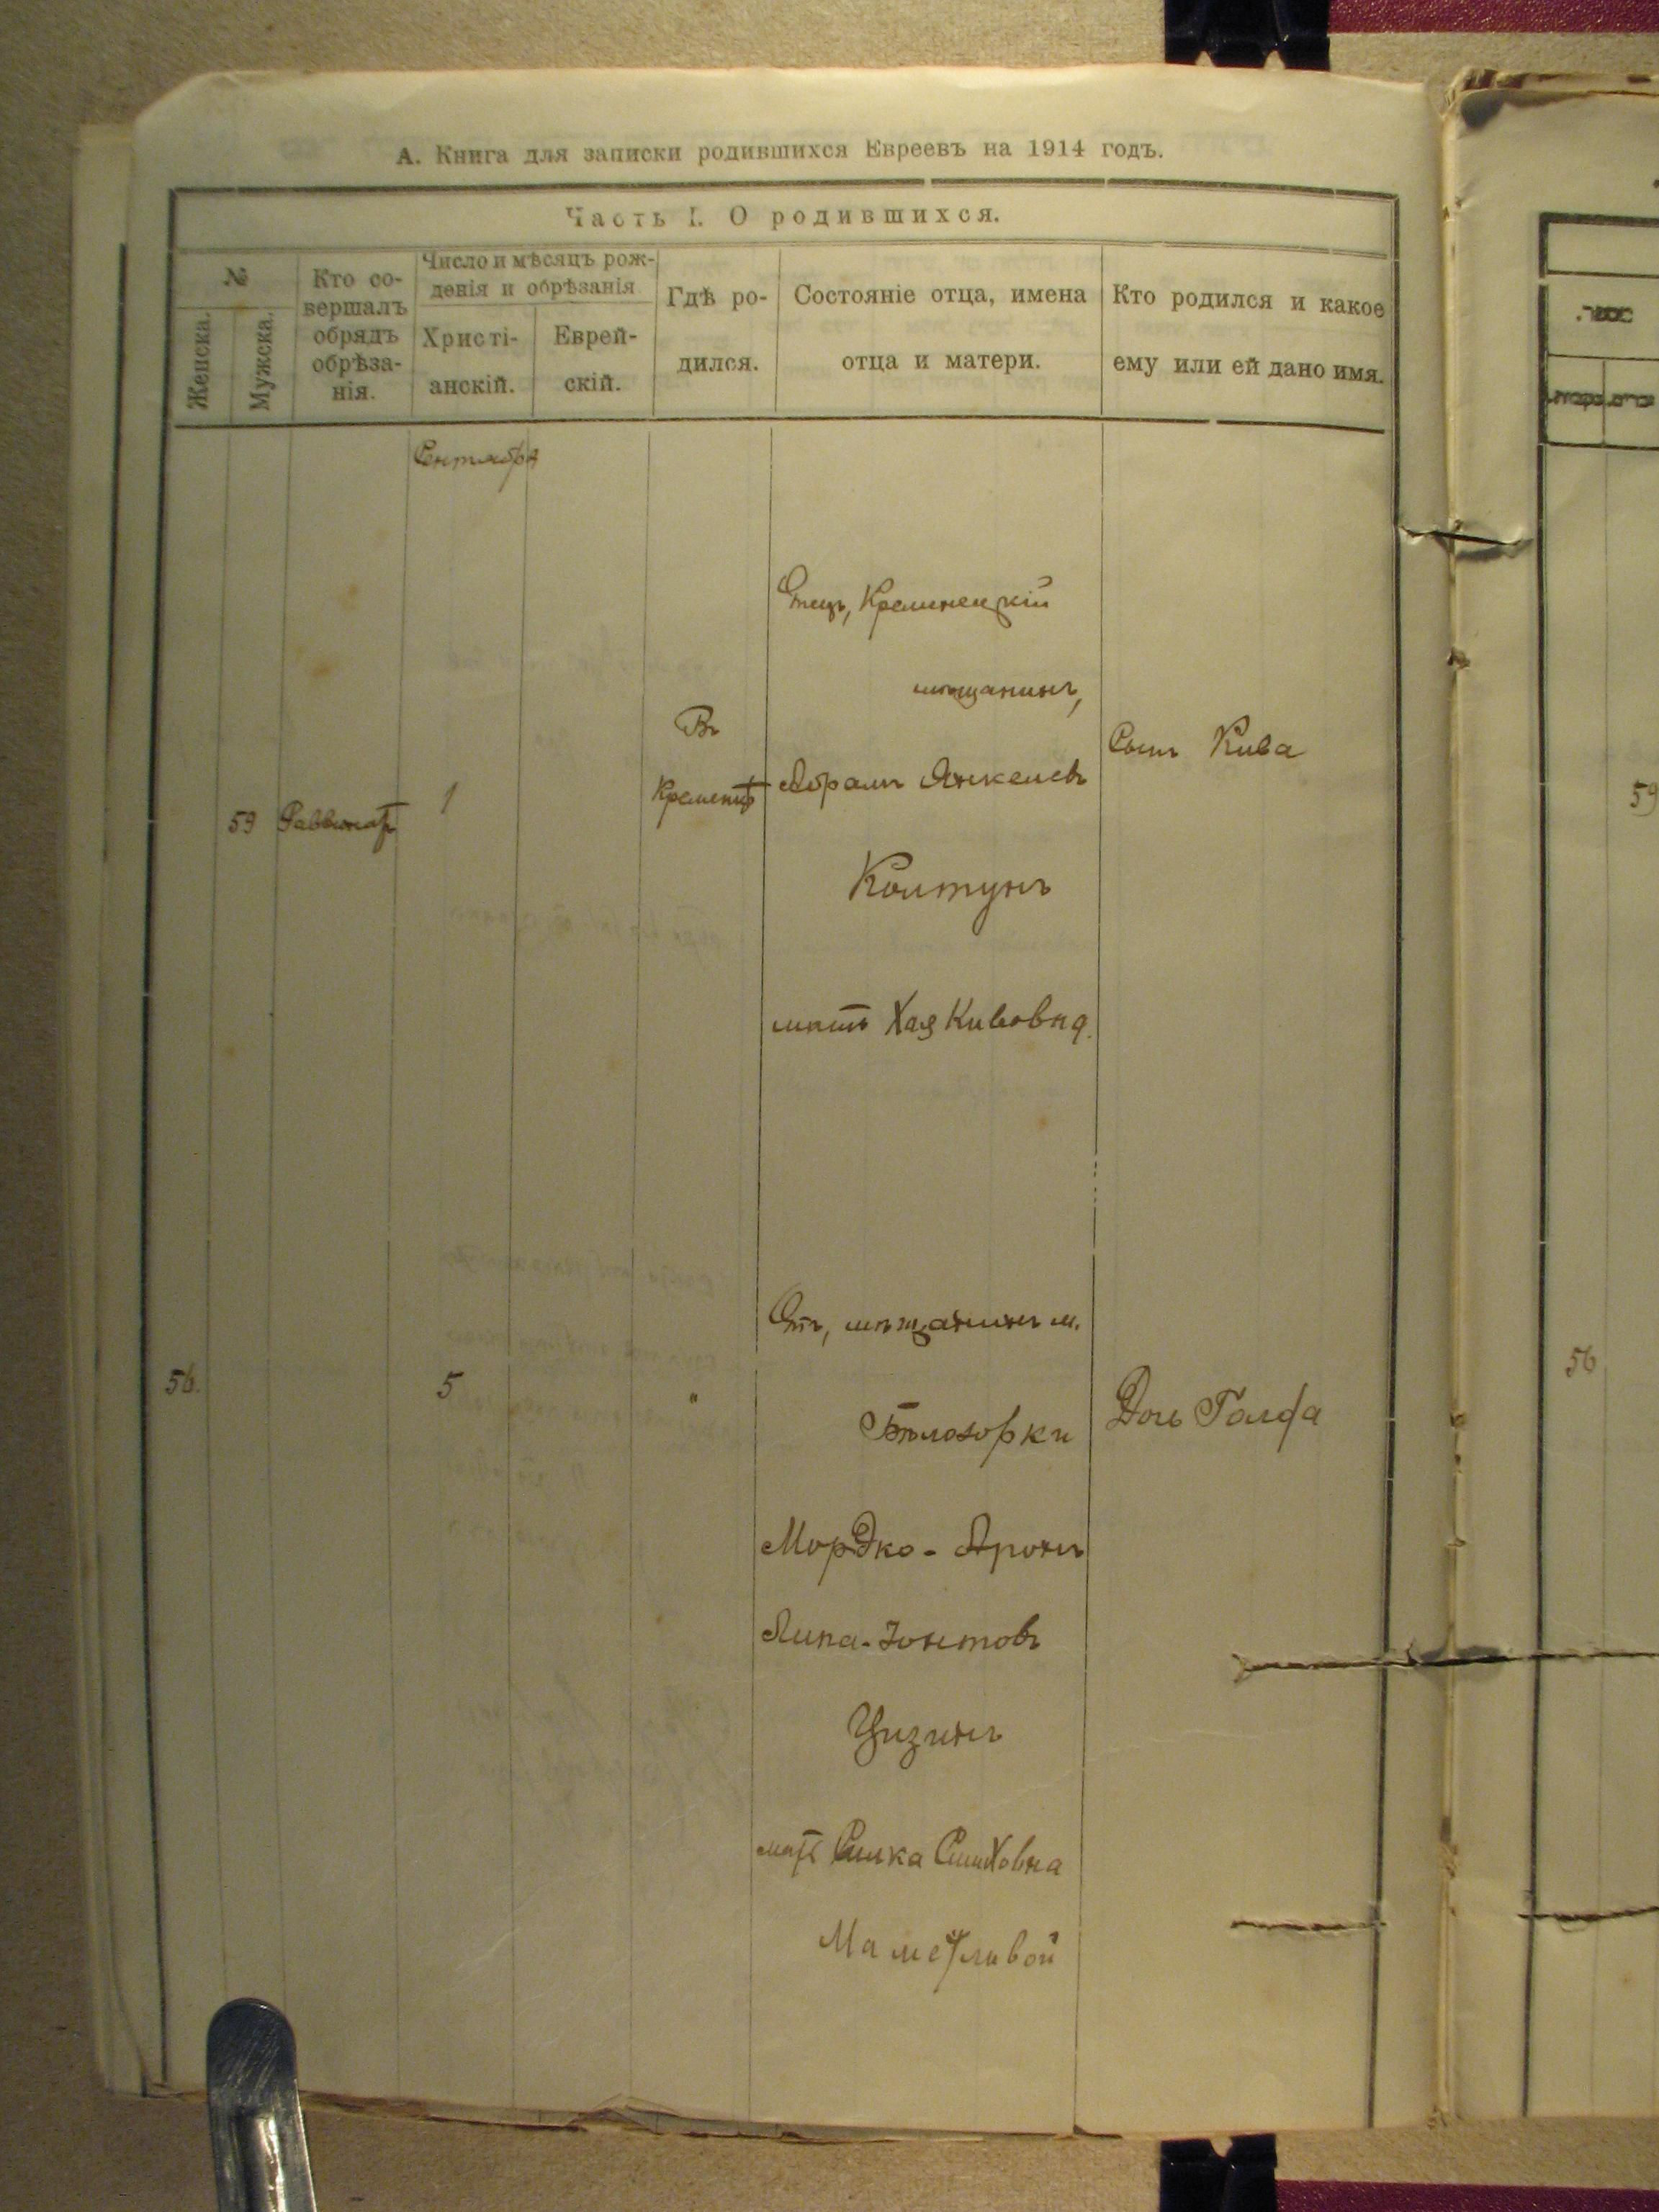 А. Книга для записки родившихся Евреевъ на 1914 годъ.
Часть I. О родившихся.
№
Женска.
Мужска.
Кто со-
вершалъ
обрядъ
обрѣза-
нія.
Число и мѣсяцъ рож-
денія и обрѣзанія
Христі-
анскій.
Еврей-
скій.
Гдѣ ро-
дился.
Состояніе отца, имена
отца и матери.
Кто родился и какое
ему или ей дано имя.
Сентября
59
1
Въ
Кременцѣ
Отецъ, Кременецкій
мѣщанинъ,
Абрамъ Янкелевъ
Колтунъ
мать Хая Кивовна
Сынъ Кива
59
56.
5
"
От., мѣщанинъ м.
Бѣлозорки
Мордко-Аронъ
Липа-Іонтовъ
Цизинъ
мать Симховна
Дочь
56